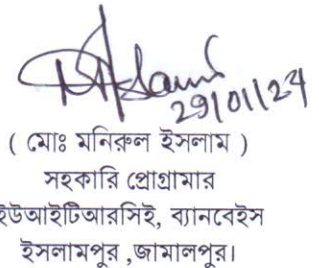 29/01/24
( মোঃ মনিরুল ইসলাম )
সহকারি প্রোগ্রামার
ইউআইটিআরসিই, ব্যানবেইস
ইসলামপুর ,জামালপুর।